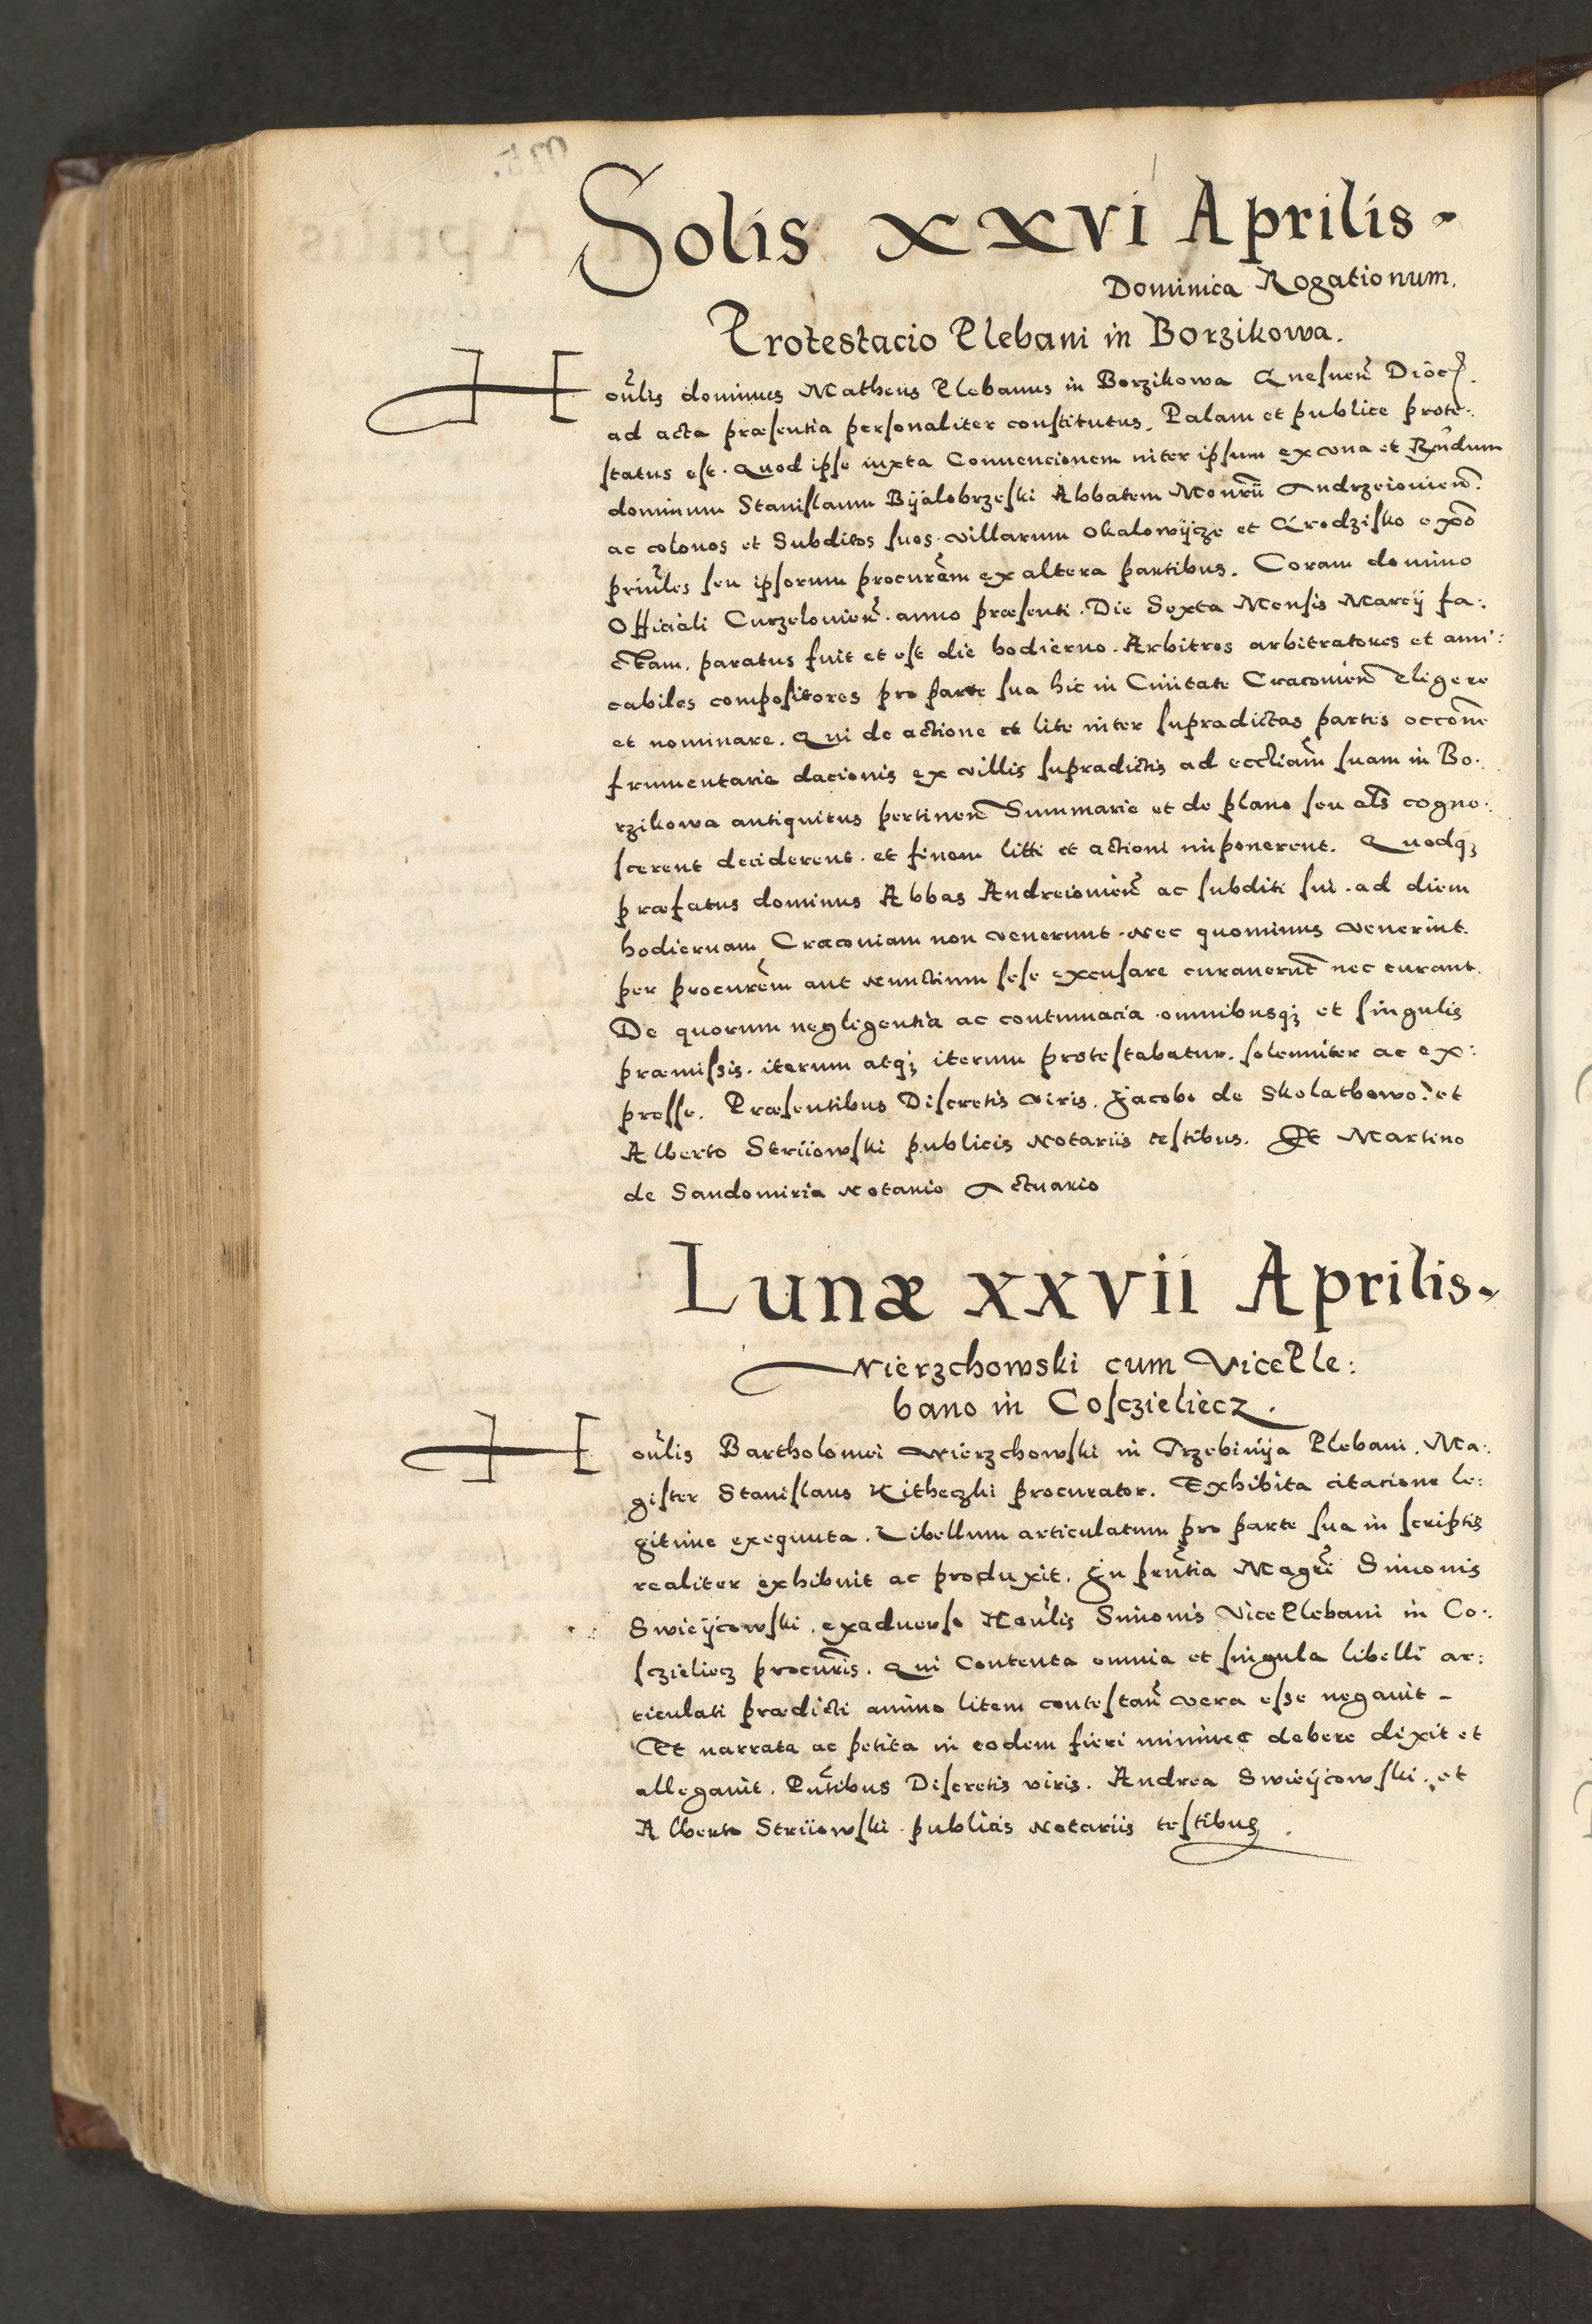 Solis xxvi Aprilis
Dominica Rogationum.
Protestacio Plebani in Borzikowa.
Honlis dominus Matheus Plebanus in Borzikowa Gnesnen Dioc.
ad acta præsentia personaliter constitutus. Palam et publice prote:
status est. Quod ipse iuxta Conuencionem inter ipsum ex vna et Rndum
dominum Stanislaum Bijalobrzeski Abbatem Monrii Andrzeiouien.
ac colonos et Subditos suos villarum Okalowijcze et Grodzisko
prinles seu ipsorum procurem ex altera partibus. Coram domino
Officiali Curzelouien. anno præsenti. Die Sexta Mensis Marcij fa:
ctam. paratus fuit et est die hodierno. Arbitros arbitratores et ami:
cabiles compositores pro parte sua hic in Ciuitate Cracouien Eligere
et nominare. Qui de actione et lite inter supradictas partes occone
frumentarie dacionis ex villis supradictis ad eccliam suam in Bo:
rzikowa antiquitus pertinen Summarie et de plano seu als cogno:
scerent deciderent. et finem litti et actioni imponerent. Quodqȝ
præfatus dominus Abbas Andreiouien ac subditi sui. ad diem
hodiernam Cracouiam non venerunt. Nec quominus venerint.
per procurem aut Nunctium sese excusare curauerunt nec curant.
De quorum negligentia ac contumacia omnibusqȝ et singulis
præmissis. iterum atqȝ iterum protestabatur. solemniter ac ex:
presse. Præsentibus Discretis viris. Jacobo de Skolathowo. et
Alberto Striiowski publicis Notariis testibus. Et Martino
de Sandomiria Notario Actuario
Lunæ xxvii Aprilis
Wierzchowski cum VicePle:
bano in Cosczieliecz.
Honlis Bartholomei Wierzchowski in Trzebinija Plebani. Ma:
gister Stanislaus Kitheczki procurator. Exhibita citacione le:
gitime exequuta. Libellum articulatum pro parte sua in scriptis
realiter exhibuit ac produxit. In prntia Magri Simonis
Swieijcowski. exaduerso Honlis Simonis VicePlebani in Co:
sczieliecz procuris. Qui Contenta omnia et singula libelli ar:
ticulati prædicti animo litem contestan vera esse negauit
Et narrata ac petita in eodem fieri minime debere dixit et
allegauit. Pntibus Discretis viris. Andrea Swieijcowski. et
Alberto Striiowski. publicis Notariis testibus.